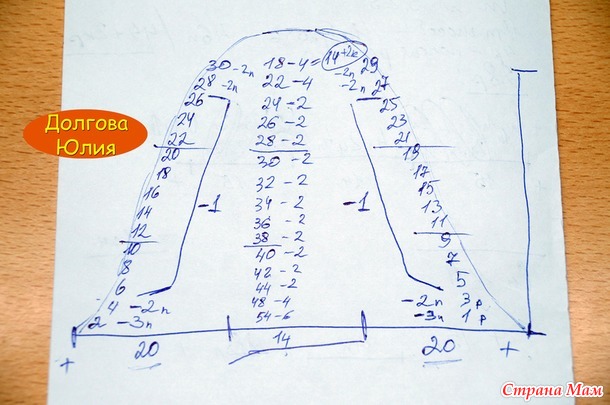 30 -2п 18-4= 14+2к -2п 29
28 -2п 22-4 -2п 27
26 24-2 25
24 26-2 23
22 28-2 21
20 30-2 19
18 32-2 17
16 34-2 15
14 -1 36-2 -1 13
12 38-2 11
10 40-2 9
8 42-2 7
6 44-2 5
4 -2п 48-4 -2п 3р
2 -3п 54-6 -3п 1р
+ 20 14 20 +
Долгова
Юлия
Страна Мам